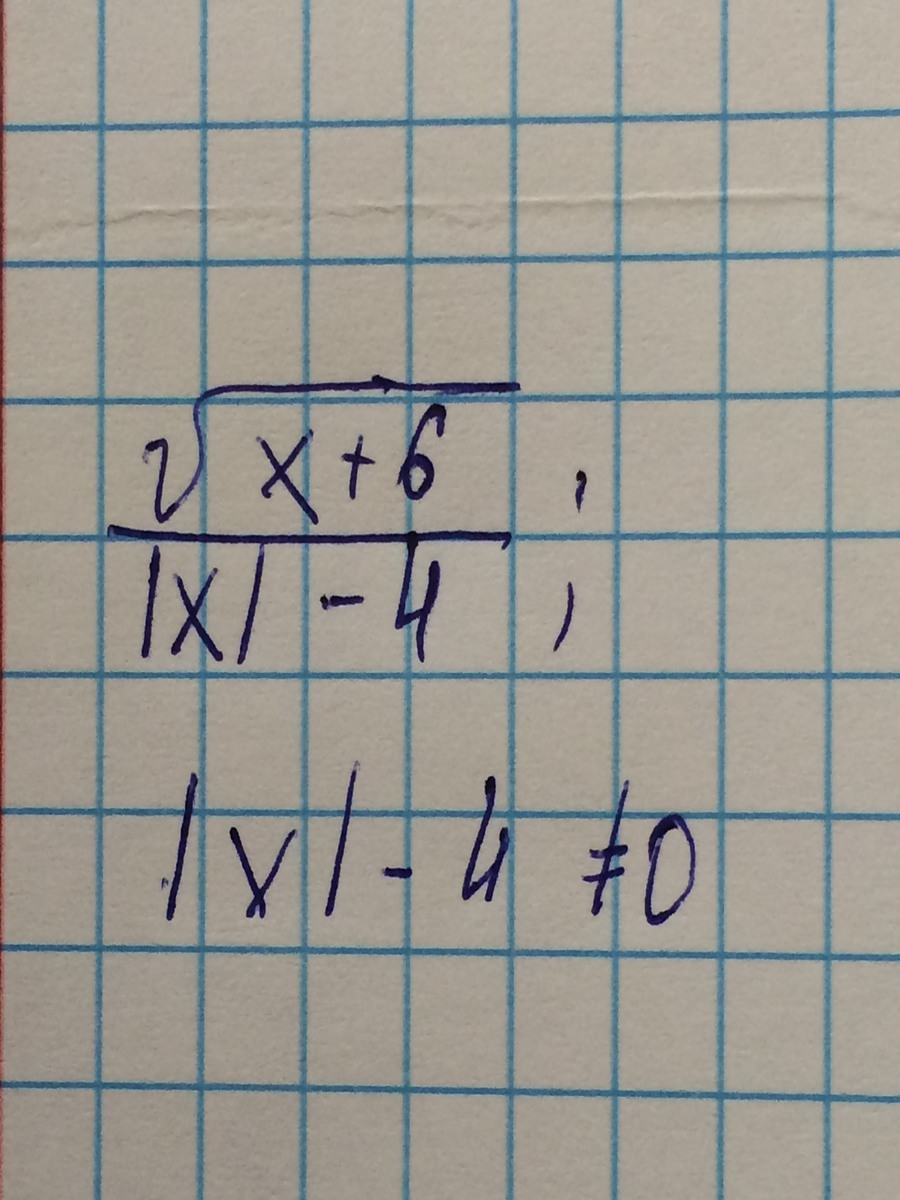 √(x+6) / (|x| - 4) ;
|x| - 4 ≠ 0